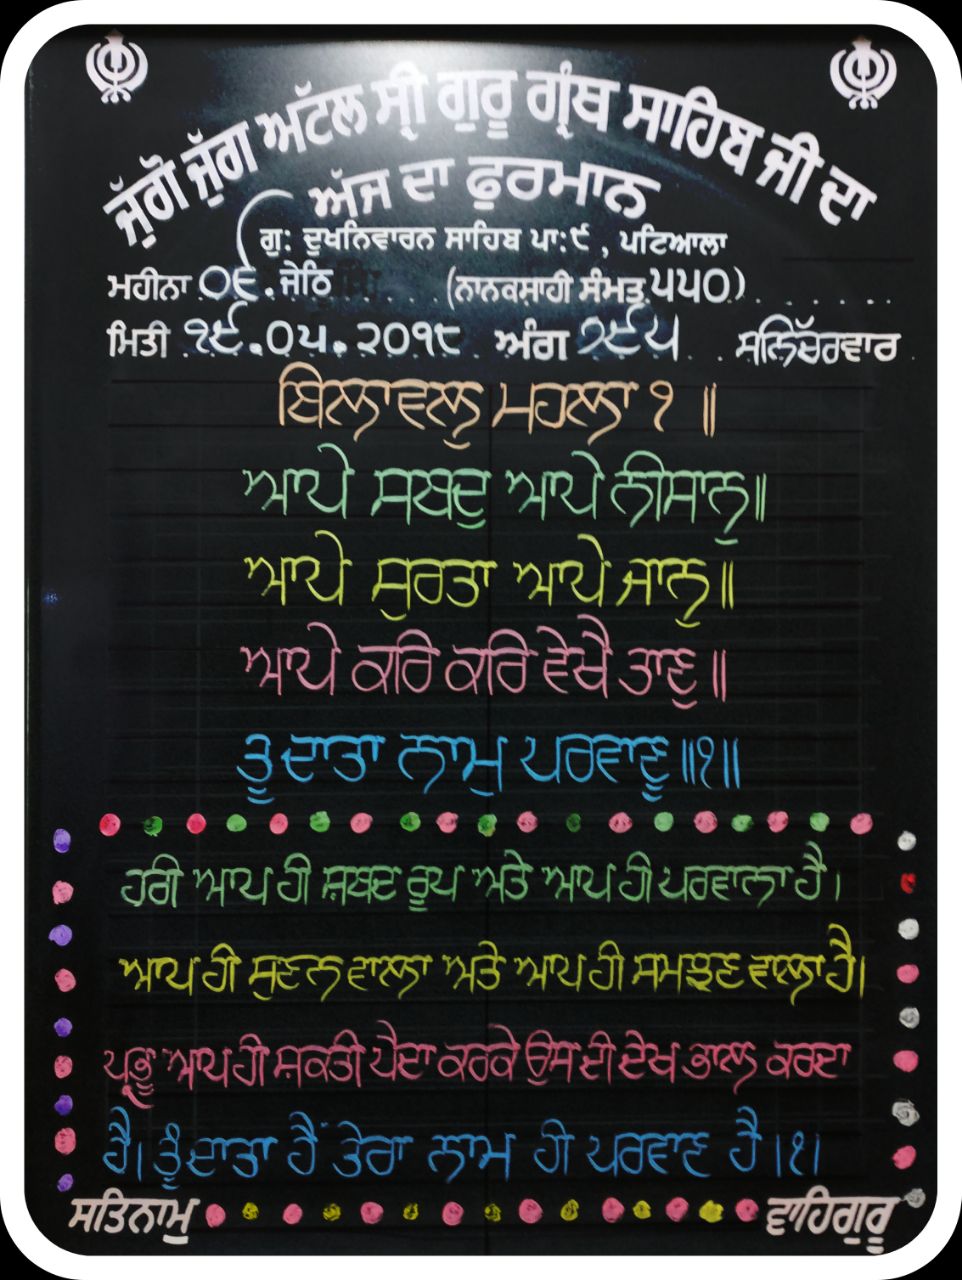 ਜੁੱਗੋ ਜੁੱਗ ਅਟੱਲ ਸ੍ਰੀ ਗੁਰੂ ਗ੍ਰੰਥ ਸਾਹਿਬ ਜੀ ਦਾ
ਅੱਜ ਦਾ ਫੁਰਮਾਨ
ਗੁ: ਦੁਖਨਿਵਾਰਨ ਸਾਹਿਬ ਪਾ:੯, ਪਟਿਆਲਾ
ਮਹੀਨਾ ੦੬.ਜੇਠਿ (ਨਾਨਕਸ਼ਾਹੀ ਸੰਮਤ ੫੫੦)
ਮਿਤੀ ੧੯.੦੫.੨੦੧੮ ਅੰਗ ੭੯੫ ਸ਼ਨਿੱਚਰਵਾਰ
ਬਿਲਾਵਲੁ ਮਹਲਾ ੧ ॥
ਆਪੇ ਸਬਦੁ ਆਪੇ ਨੀਸਾਨੁ॥
ਆਪੇ ਸੁਰਤਾ ਆਪੇ ਜਾਨੁ॥
ਆਪੇ ਕਰਿ ਕਰਿ ਵੇਖੈ ਤਾਣੁ॥
ਤੂ ਦਾਤਾ ਨਾਮੁ ਪਰਵਾਣੁ॥੧॥
ਹਰੀ ਆਪ ਹੀ ਸ਼ਬਦ ਰੂਪ ਅਤੇ ਆਪ ਹੀ ਪਰਵਾਨਾ ਹੈ।
ਆਪ ਹੀ ਸੁਣਨ ਵਾਲਾ ਅਤੇ ਆਪ ਹੀ ਸਮਝਣ ਵਾਲਾ ਹੈ।
ਪ੍ਰਭੂ ਆਪ ਹੀ ਸ਼ਕਤੀ ਪੈਦਾ ਕਰਕੇ ਉਸ ਦੀ ਦੇਖ ਭਾਲ ਕਰਦਾ
ਹੈ। ਤੂੰ ਦਾਤਾ ਹੈਂ ਤੇਰਾ ਨਾਮ ਹੀ ਪਰਵਾਣ ਹੈ।੧।
ਸਤਿਨਾਮੁ ਵਾਹਿਗੁਰੂ